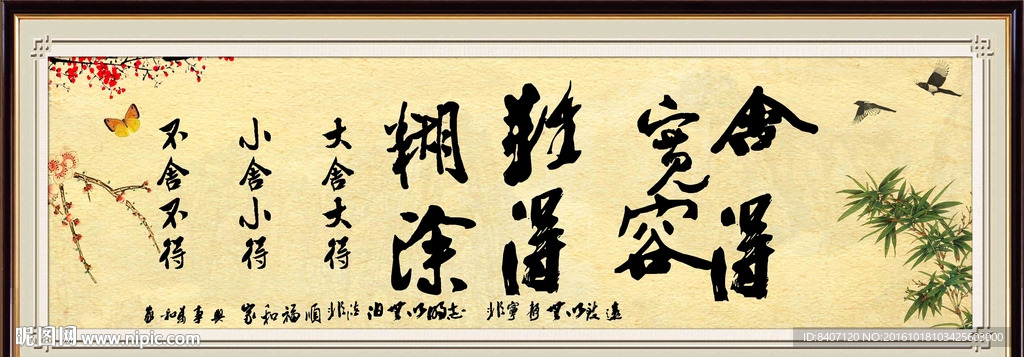 舍得
宽容
難得
糊涂
大舍大得
小舍小得
不舍不得
家和萬事興 家和福順 非淡泊無以明志 非寧靜無以致遠
昵图网 www.nipic.com
ID:8407120 NO:20161018103425603000